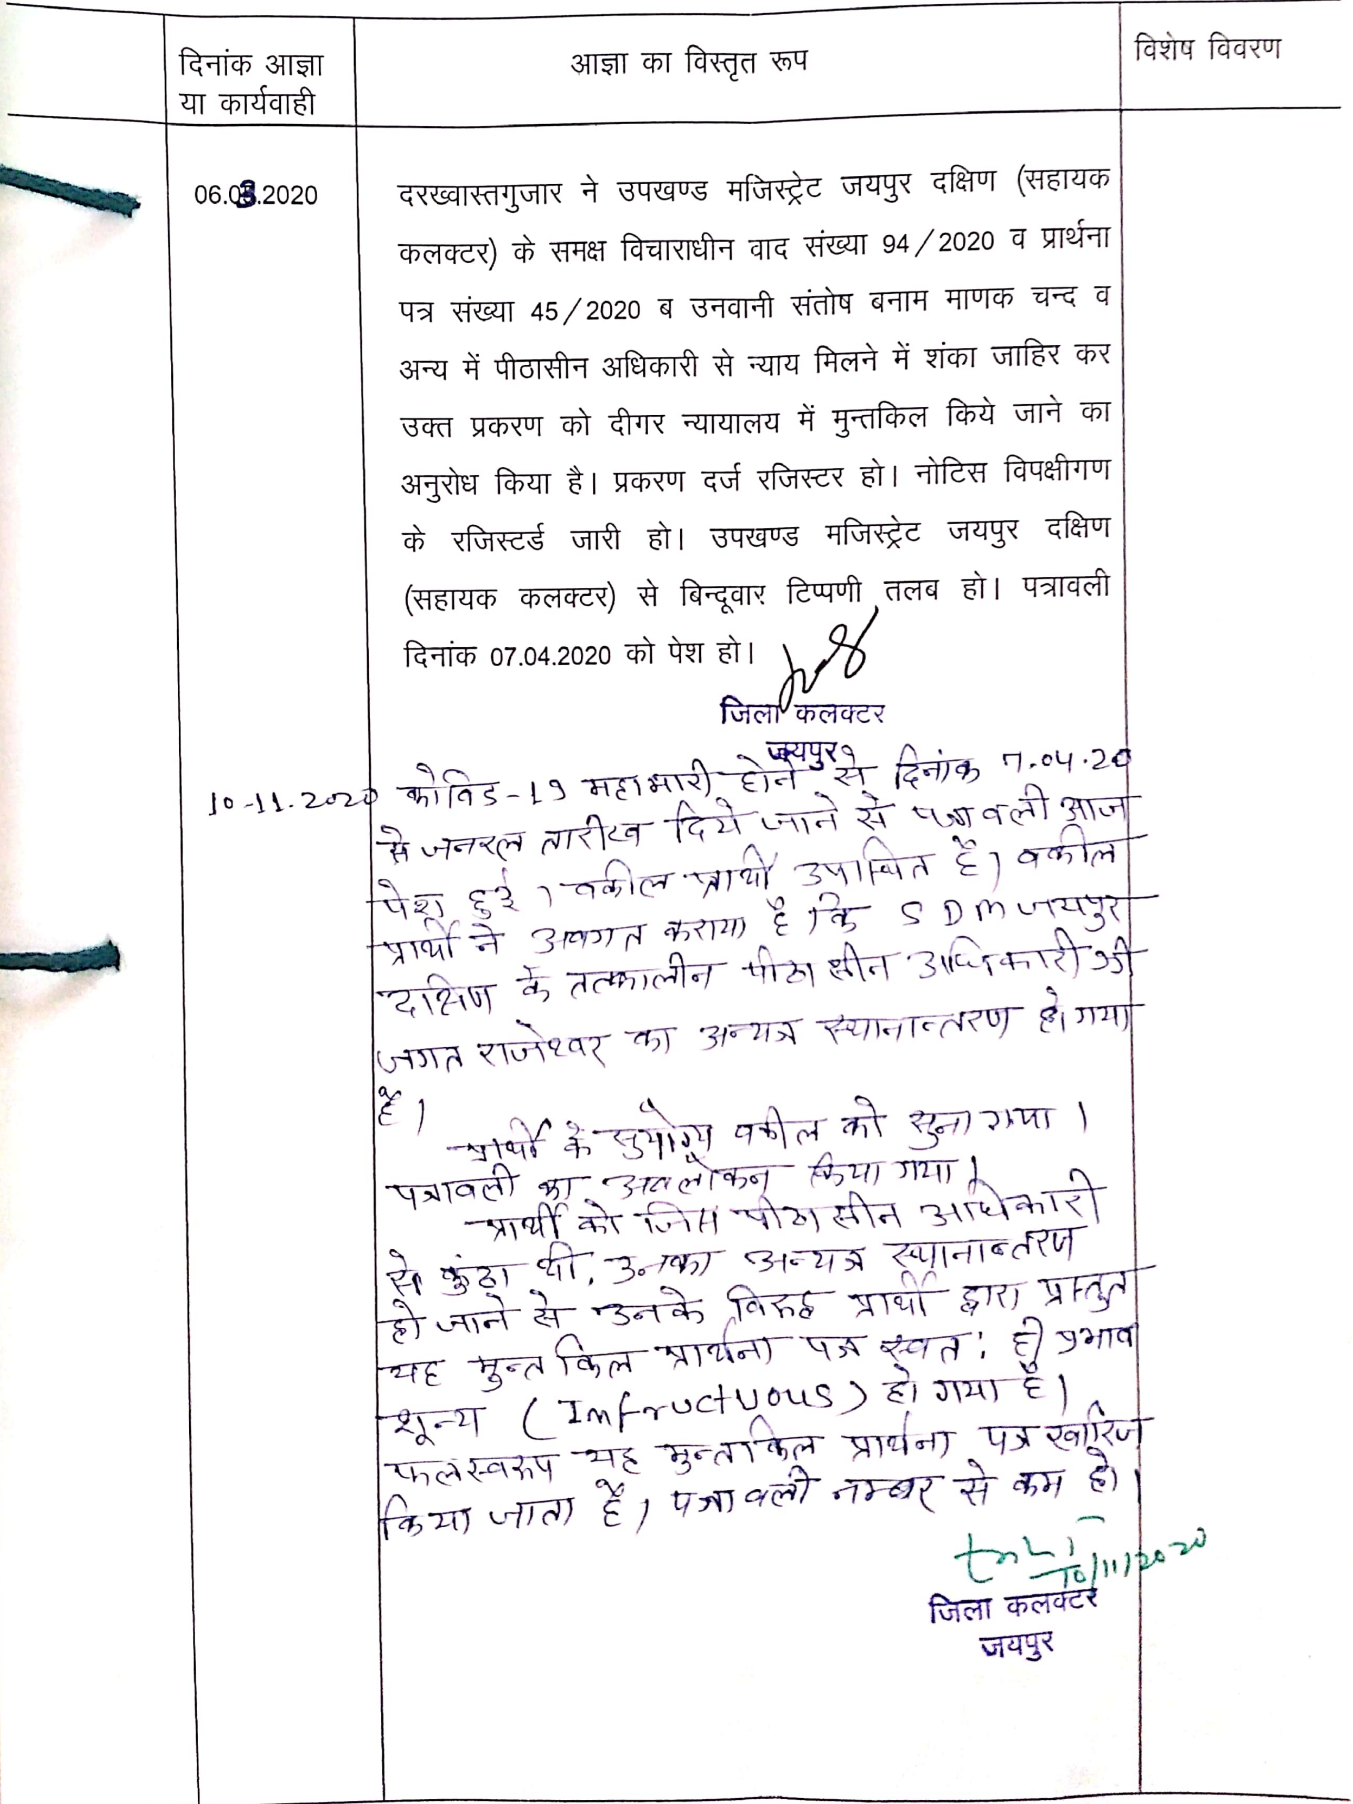 दिनांक आज्ञा
या कार्यवाही
आज्ञा का विस्तृत रूप
विशेष विवरण
06.03.2020
दरख्वास्तगुजार ने उपखण्ड मजिस्ट्रेट जयपुर दक्षिण (सहायक
कलक्टर) के समक्ष विचाराधीन वाद संख्या 94/2020 व प्रार्थना
पत्र संख्या 45/2020 ब उनवानी संतोष बनाम माणक चन्द व
अन्य में पीठासीन अधिकारी से न्याय मिलने में शंका जाहिर कर
उक्त प्रकरण को दीगर न्यायालय में मुन्तकिल किये जाने का
अनुरोध किया है। प्रकरण दर्ज रजिस्टर हो। नोटिस विपक्षीगण
के रजिस्टर्ड जारी हो। उपखण्ड मजिस्ट्रेट जयपुर दक्षिण
(सहायक कलक्टर) से बिन्दूवार टिप्पणी तलब हो। पत्रावली
दिनांक 07.04.2020 को पेश हो।
जिला कलक्टर
जयपुर
10-11.2020 कोविड-19 महामारी होने से दिनांक 7.04.20
से जनरल तारीख दिये जाने से पत्रावली आज
पेश हुई। वकील प्रार्थी उपस्थित है। वकील
प्रार्थी ने अवगत कराया है कि SDM जयपुर
दक्षिण के तत्कालीन पीठासीन अधिकारी श्री
जगत राजेश्वर का अन्यत्र स्थानान्तरण हो गया
है।
प्रार्थी के सुयोग्य वकील को सुना गया।
पत्रावली का अवलोकन किया गया।
प्रार्थी को जिस पीठासीन अधिकारी
से कुंठा थी, उनका अन्यत्र स्थानान्तरण
हो जाने से उनके विरुद्ध प्रार्थी द्वारा प्रस्तुत
यह मुन्तकिल प्रार्थना पत्र स्वत: ही प्रभाव
शून्य (Infructuous) हो गया है।
फलस्वरूप यह मुन्तकिल प्रार्थना पत्र खारिज
किया जाता है। पत्रावली नम्बर से कम हो।
10/11/2020
जिला कलक्टर
जयपुर